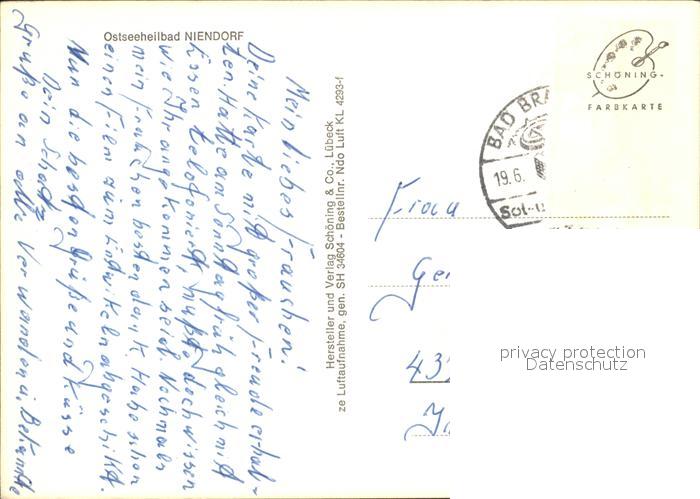 Ostseeheilbad NIENDORF
Mein liebes Frauchen!
Deine Karte mit großer Freude erhal-
ten. Hatte am Sonntag früh gleich mit
Eissen telefoniert, mußte doch wissen
wie Ihr angekommen seid. Nochmals
mein Frauchen besten dank. Habe schon
einen Film zum Entwikeln abgeschikt.
Nun die besten Grüße und Küsse
Dein Schatz
Grüße an alle Verwanden u. Bekannte
Hersteller und Verlag Schöning & Co., Lübeck
ze Luftaufnahme, gen. SH 34604 - Bestellnr. Ndo Luft KL 4293-f
SCHÖNING
FARBKARTE
BAD BRA
19.6.
Sol-u
Frau
Ge
43
privacy protection
Datenschutz